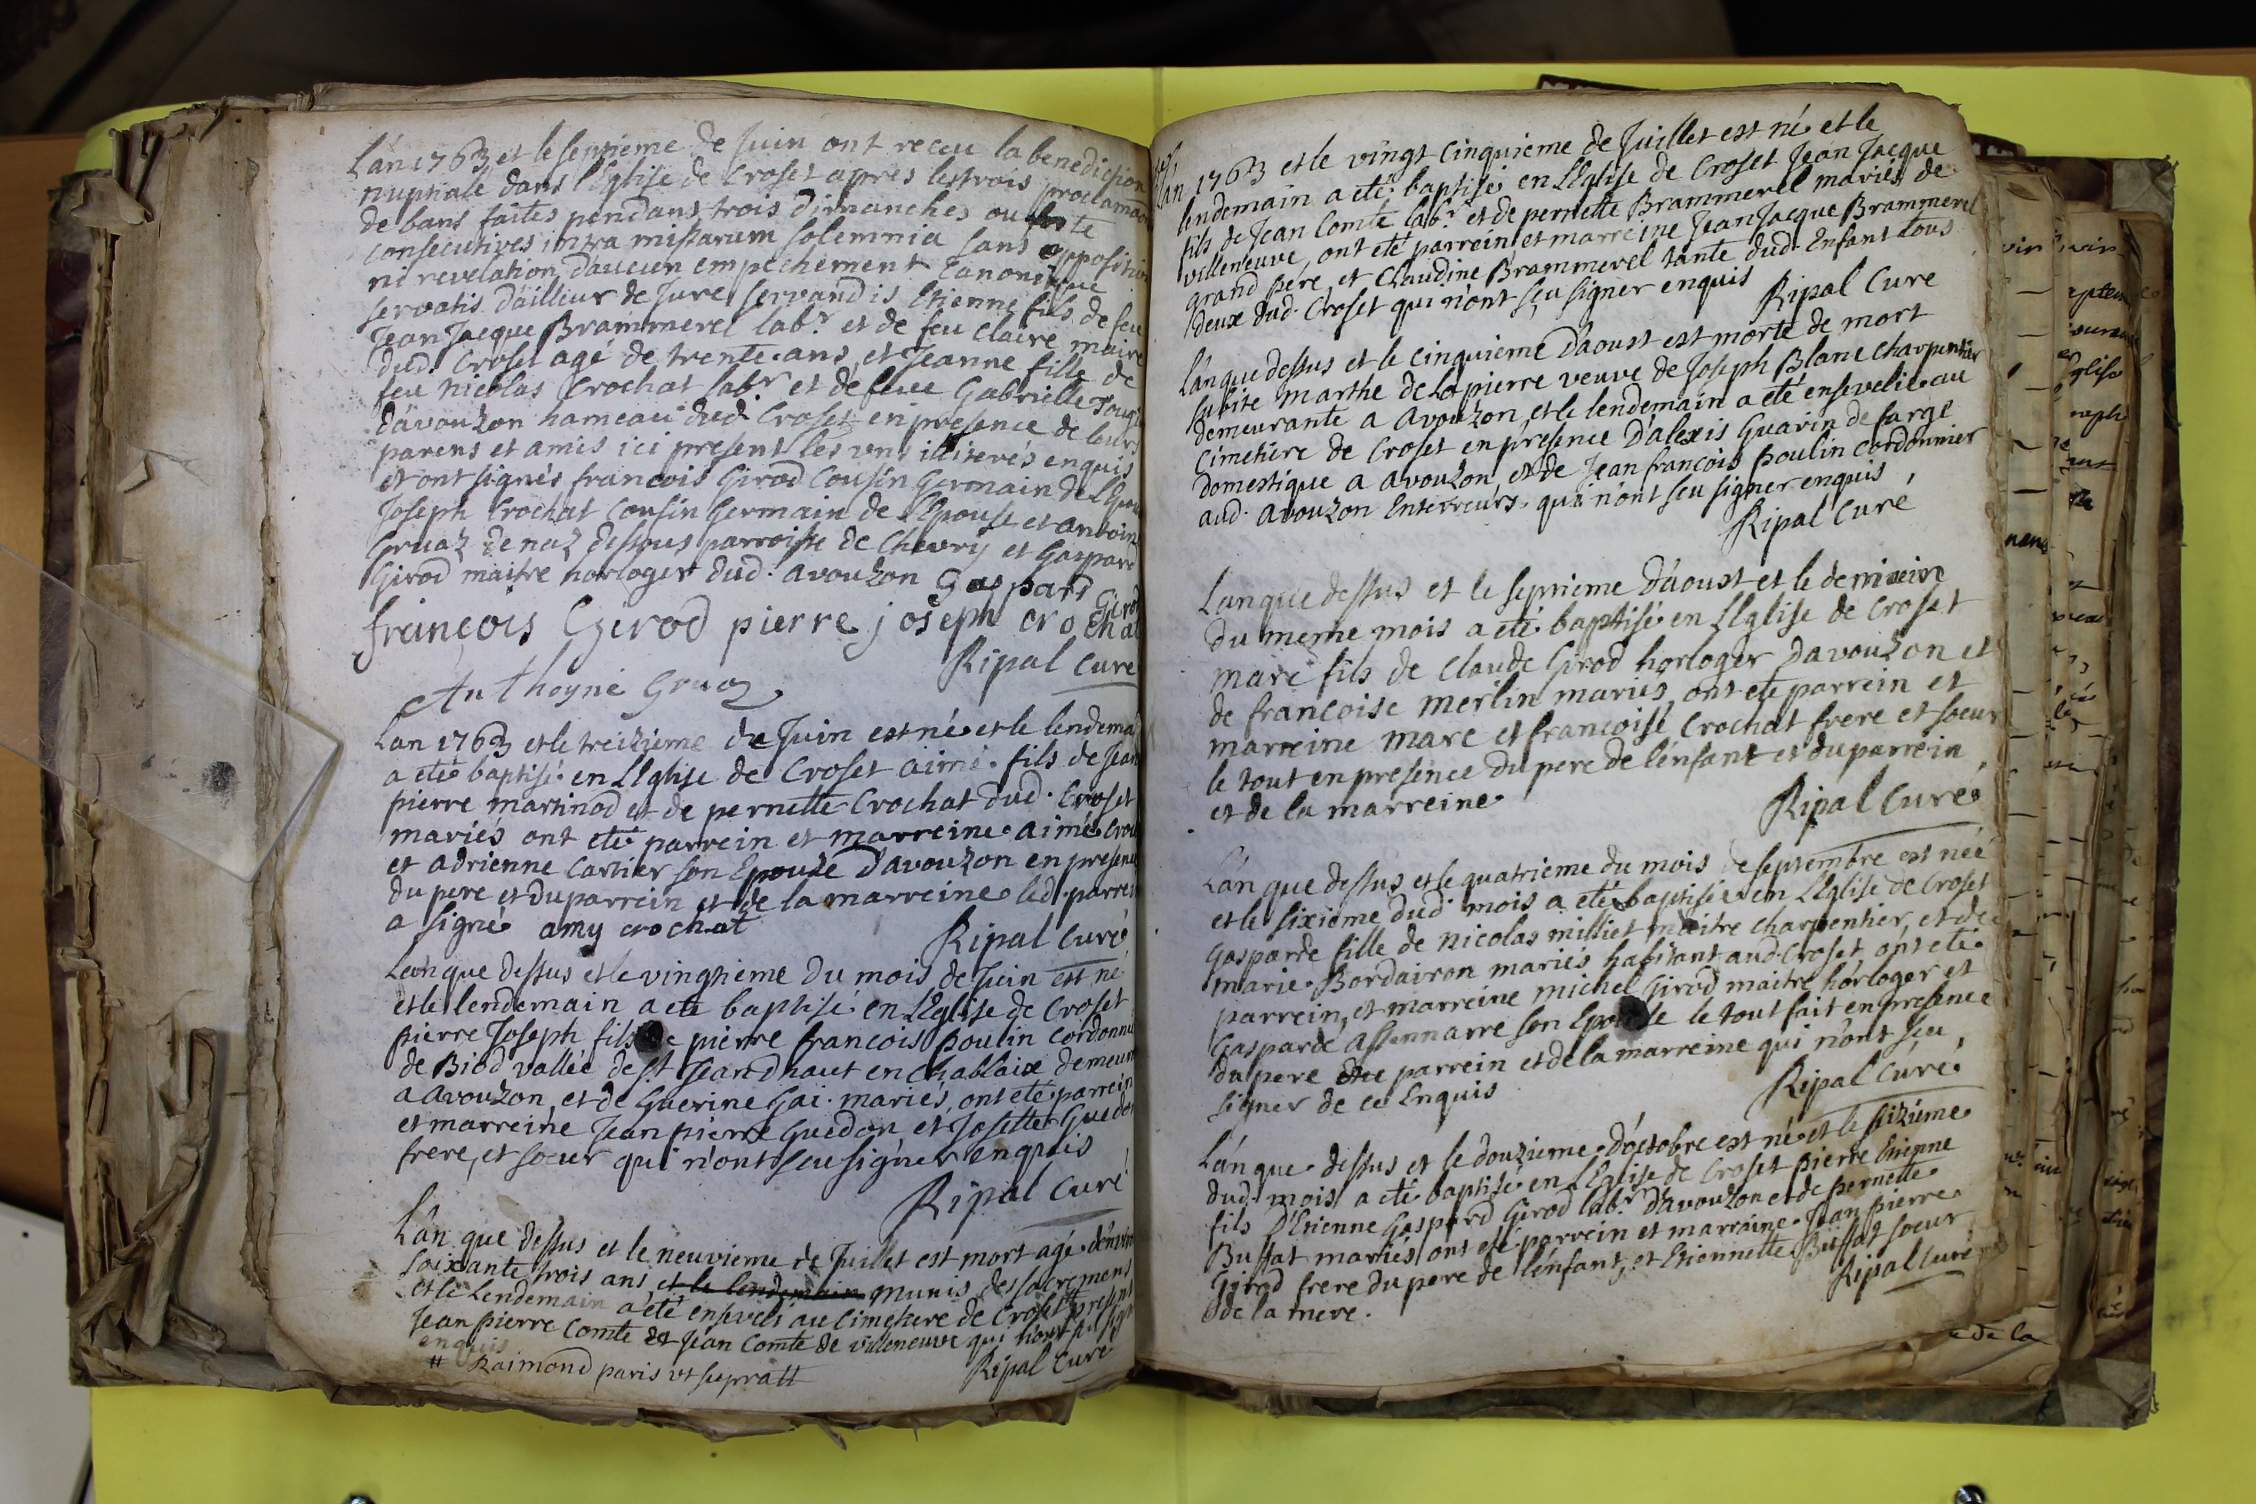 L'an 1763 et le septieme de Juin ont receu la benediction
nuptiale dans l'Eglise de Croset apres les trois proclamaõns
de bans faites pendans trois dimanches ou feste
consecutives intra missarum solemnia sans opposition
ni revelation d'aucun empechement Canonique
servatis d'ailleur de Jure servandis Etienne fils de feu
Jean Jacque Brammerel labr. et de feu Claire maire
dud. Croset agé de trente ans et Jeanne fille de
feu nicolas Crochat labr et de feue Gabrielle
d'avouzon hameau dud. Croset en presence de leurs
parens et amis ici present les uns illiterés enquis
et ont signés francois Girod Cousin Germain de L'Epoux
Joseph Crochat Cousin Germain de L'Epouse et antoine
Gruaz de naz dessous parroisse de Chevry et Gaspard
Girod maitre horloger dud. avouzon Gaspard Girod
françois Girod pierre joseph crochat
Ripal Curé
Anthoyne Gruaz
Lan 1763 et le treizieme de Juin est né et le lendemain
a eté baptisé en L'Eglise de Croset aimé fils de Jean
pierre martinod et de pernette Crochat dud. Croset
mariés ont eté parrein et marreine aimé Cro
et adrienne Cartier son Epouse d'avouzon en presence
du pere et du parrein et de la marreine led. parrein
a signé amy crochat
Ripal Curé
Lan que dessus et le vingtieme du mois de Juin est né
et le lendemain a eté baptisé en L'Eglise de Croset
pierre Joseph fils de pierre francois poulin Cordonnier
de Biod vallée de st. Jean d'haut en Chablaix demeurant
a avouzon et de Guerine Gai mariés ont eté parrein
et marreine Jean pierre Guedon et Josette Guedon
frere, et soeur qui n'ont seu signer enquis
Ripal Curé
L'an que dessus et le neuvieme de Juillet est mort agé d'environ
soixante trois ans et le lendemain munis des sacremens
et le Lendemain a eté enseveli au Cimetiere de Croset present
Jean pierre Comte et Jean Comte de villeneuve qui n'ont sçu signer
enquis
# Raimond paris ut supra #
Ripal Curé
L'an 1763 et le vingt cinquieme de Juillet est né et le
lendemain a eté baptisé en L'Eglise de Croset Jean Jacque
fils de Jean Comte labr. et de pernette Brammerel mariés de
villeneuve, ont eté parrein et marreine Jean Jacque Brammerel
grand pere, et Claudine Brammerel tante dud. Enfant tous
deux dud. Croset qui n'ont sçu signer enquis Ripal Curé
L'an que dessus et le cinquieme d'aoust est morte de mort
subite marthe de la pierre veuve de Joseph Blanc charpentier
demeurante a avouzon, et le lendemain a eté ensevelie au
Cimetiere de Croset en presence d'alexis Guarin de farge
domestique a avouzon et de Jean francois poulin Cordonnier
aud. avouzon Enterreurs qui n'ont seu signer enquis
Ripal Curé
L'an que dessus et le septieme d'aoust et le
du meme mois a eté baptisé en L'Eglise de Croset
marc fils de Claude Girod horloger d'avouzon et
de francoise merlin mariés, ont eté parrein et
marreine marc et francoise Crochat frere et soeur
le tout en presence du pere de l'enfant et du parrein
et de la marreine
Ripal Curé
L'an que dessus et le quatrieme du mois de septembre est née
et le sixieme dud. mois a eté baptisée en L'Eglise de Croset
Gasparde fille de nicolas milliet maitre charpentier et de
marie Bordairon mariés habitant aud. Croset ont eté
parrein, et marreine michel Girod maitre horloger et
Gasparde assennarre son Epouse le tout fait en presence
du pere du parrein et de la marreine qui n'ont seu
signer de ce Enquis
Ripal Curé
L'an que dessus et le douzieme d'octobre est né et le seizieme
dud. mois a eté baptisé en L'Eglise de Croset pierre Etienne
fils d'Etienne Gaspard Girod labr. d'avouzon et de pernette
Buffat mariés ont eté parrein et marreine Jean pierre
Girod frere du pere de l'enfant, et Etiennette Buffat soeur
de la mere.
Ripal Curé